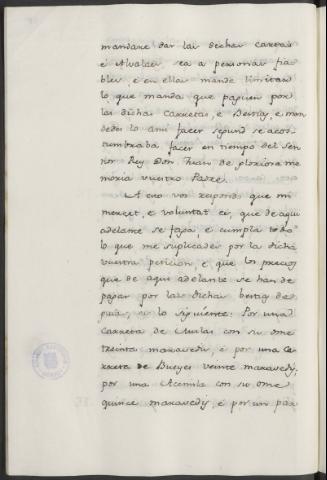 mandare dar las dichas cartas
é Alvalaes, sea á personas fia
bles, é en ellas mande limitar
lo, que manda que paguen por
las dichas Carretas, é Bestias, é man
dedes lo ansi facer segund se acos-
tumbraba facer en tiempo del Sen
nor Rey Don Juan de gloriosa me
moria vuestro Padre.
A esto vos respondo que mi
merced, é voluntat es, que de aqui
adelante se faga, é cumpla todo
lo que me suplicades por la dicha
vuestra peticion, é que los precios
que de aqui adelante se han de
pagar por las dichas bestias de
guia, es lo siguiente: Por una
Carreta de Mulas con su ome
treinta maravedis, é por una Ca-
rreta de Bueyes veinte maravedis,
por una Acemila con su ome
quince maravedis, é por un par